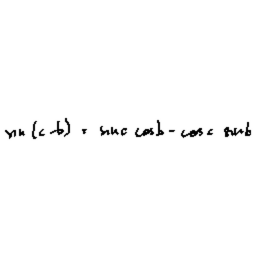 sin (c - b) = sin c cos b - cos c sin b